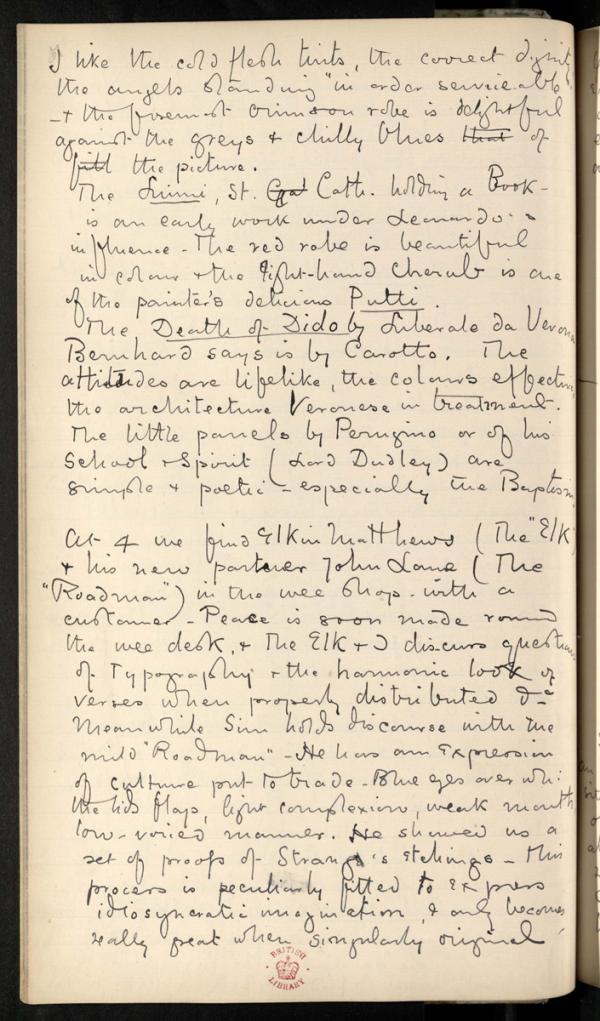 I like the cold flesh tints, the correct dignity,
the angels standing "in order serviceable
- & the foremost crimson robe is delightful
against the greys & chilly blues that of
the picture.
The Luini, St. Cath. holding a Book -
is an early work under Leonardo's
influence - The red robe is beautiful
in colour & the right-hand cherub is one
of the painter's delicious Putti.
The Death of Dido by Liberale da Verona
Bernhard says is by Carotto. The
attitudes are lifelike, the colours effective,
the architecture Veronese in treatment.
The little panels by Perugino or of his
School & Spirit (Lord Dudley) are
simple & poetic - especially the Baptism
At 4 we find Elkin Matthews (The "Elk")
& his new partner John Lane (The
"Roadman") in the wee shop - with a
customer - Peace is soon made round
the wee desk, & The Elk & I discuss questions
of Typography & the harmonic look of
verses when properly distributed &c
Meanwhile Sim holds discourse with the
mild "Roadman" - He has an expression
of culture put to trade - Blue eyes over wh:
the lids flap, light complexion, weak mouth,
low-voiced manner. He showed us a
set of proofs of Strang's etchings - this
process is peculiarly fitted to express
idiosyncratic imagination, & only becomes
really great when singularly original
BRITISH
LIBRARY